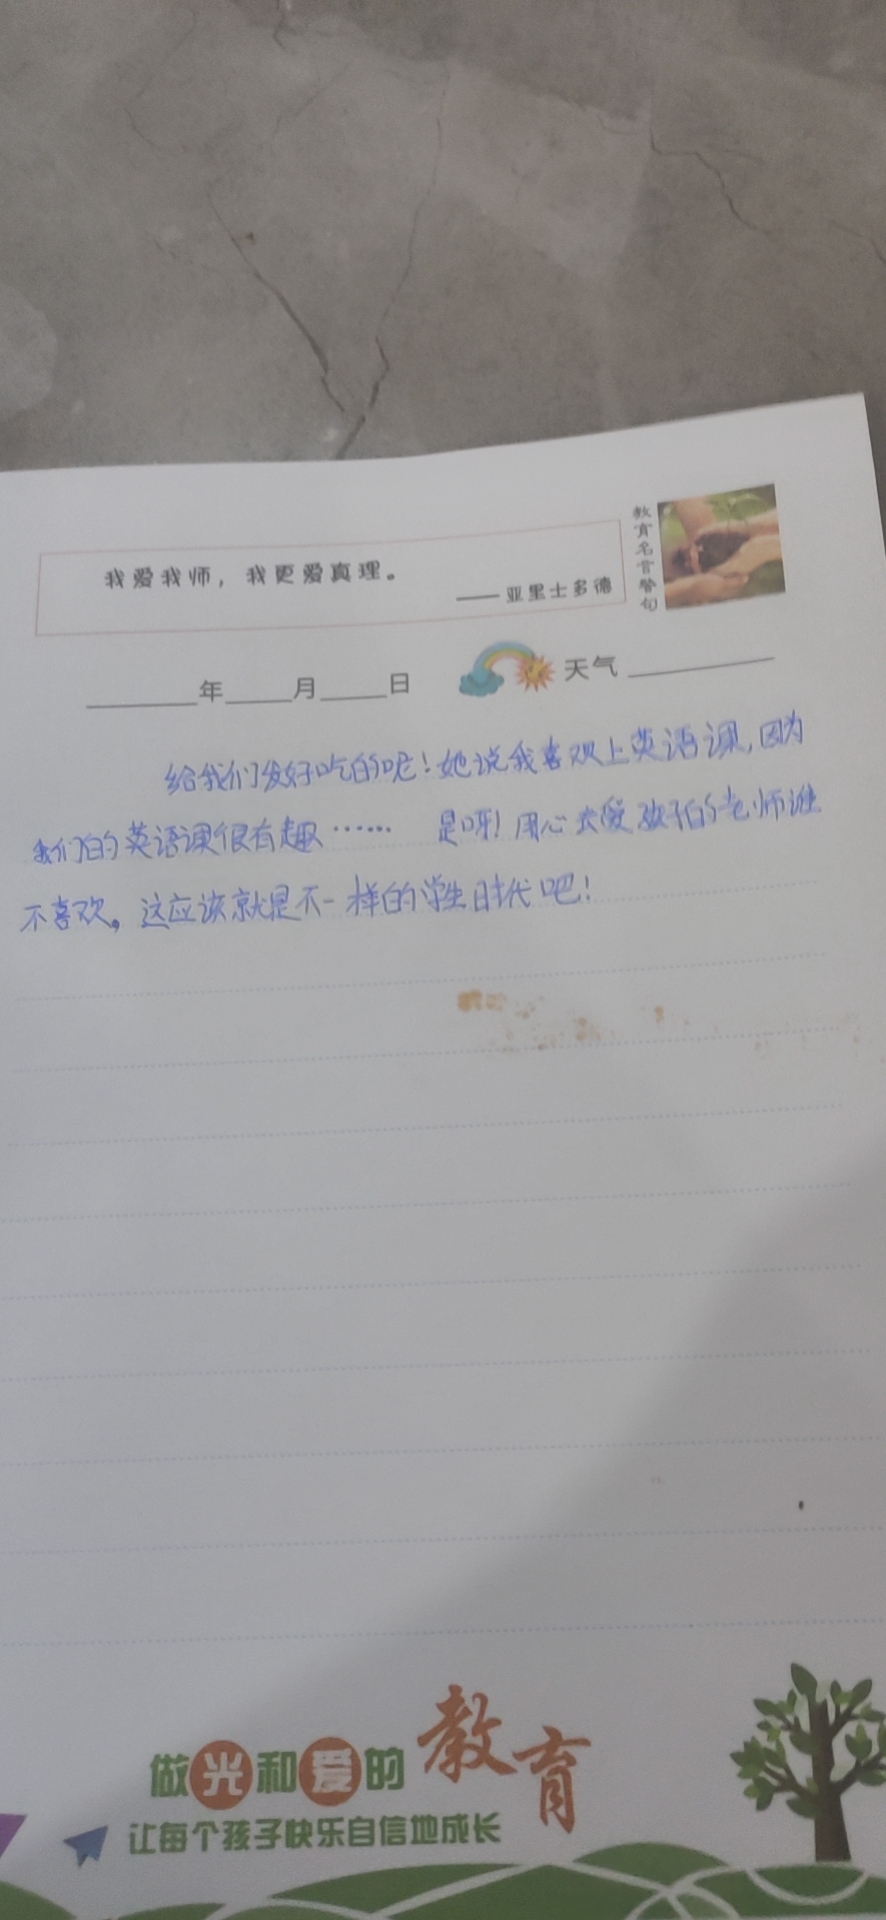 我爱我师，我更爱真理。
——亚里士多德
教育名言警句
____年____月____日 天气____
给我们发好吃的呢！她说我喜欢上英语课，因为
我们的英语课很有趣…… 是呀！用心去爱孩子的老师谁
不喜欢。这应该就是不一样的学生时代吧！
做光和爱的教育
让每个孩子快乐自信地成长